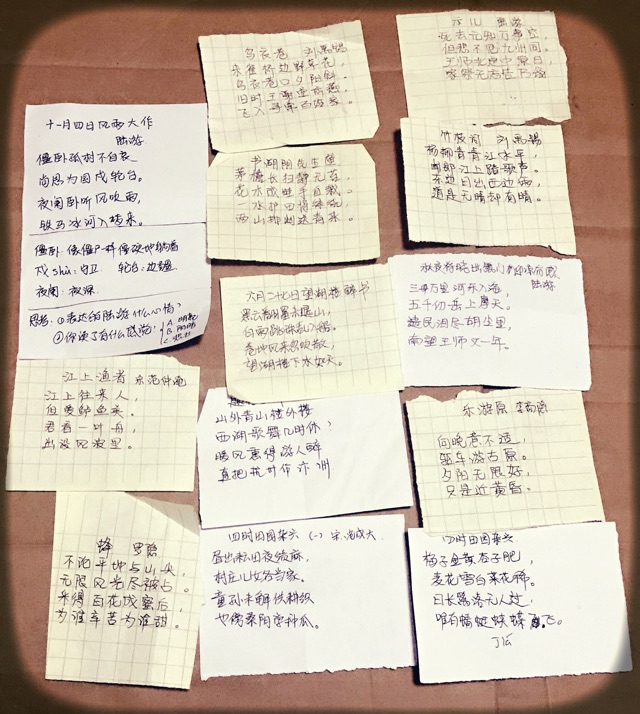 十一月四日风雨大作
陆游
僵卧孤村不自哀
尚思为国戍轮台。
夜阑卧听风吹雨，
铁马冰河入梦来。
僵卧:像僵尸一样僵硬地躺着
戍shù:守卫 轮台:边疆
夜阑:夜深
思考:①表达的陆游什么心情?
②你读了有什么感觉?
江上渔者 范仲淹
江上往来人，
但爱鲈鱼美。
君看一叶舟，
出没风波里。
蜂 罗隐
不论平地与山尖
无限风光尽被占。
采得百花成蜜后，
为谁辛苦为谁甜。
乌衣巷 刘禹锡
朱雀桥边野草花，
乌衣巷口夕阳斜。
旧时王谢堂前燕
飞入寻常百姓家。
书湖阴先生壁
茅檐长扫静无苔
花木成畦手自栽。
一水护田将绿绕
两山排闼送青来。
六月二十七日望湖楼醉书
黑云翻墨未遮山，
白雨跳珠乱入船。
卷地风来忽吹散，
望湖楼下水如天。
山外青山楼外楼
西湖歌舞几时休?
暖风熏得游人醉
直把杭州作汴州
四时田园杂兴 (一) 宋 范成大
昼出耘田夜绩麻，
村庄儿女各当家。
童孙未解供耕织
也傍桑阴学种瓜。
示儿 陆游
死去元知万事空，
但悲不见九州同。
王师北定中原日，
家祭无忘告乃翁
竹枝词 刘禹锡
杨柳青青江水平，
闻郎江上踏歌声。
东边日出西边雨，
道是无晴却有晴。
秋夜将晓出篱门迎凉有感
陆游
三万里河东入海，
五千仞岳上摩天。
遗民泪尽胡尘里，
南望王师又一年。
乐游原 李商隐
向晚意不适，
驱车游古原。
夕阳无限好，
只是近黄昏。
四时田园杂兴
梅子金黄杏子肥，
麦花雪白菜花稀。
日长篱落无人过，
唯有蜻蜓蛱蝶飞。